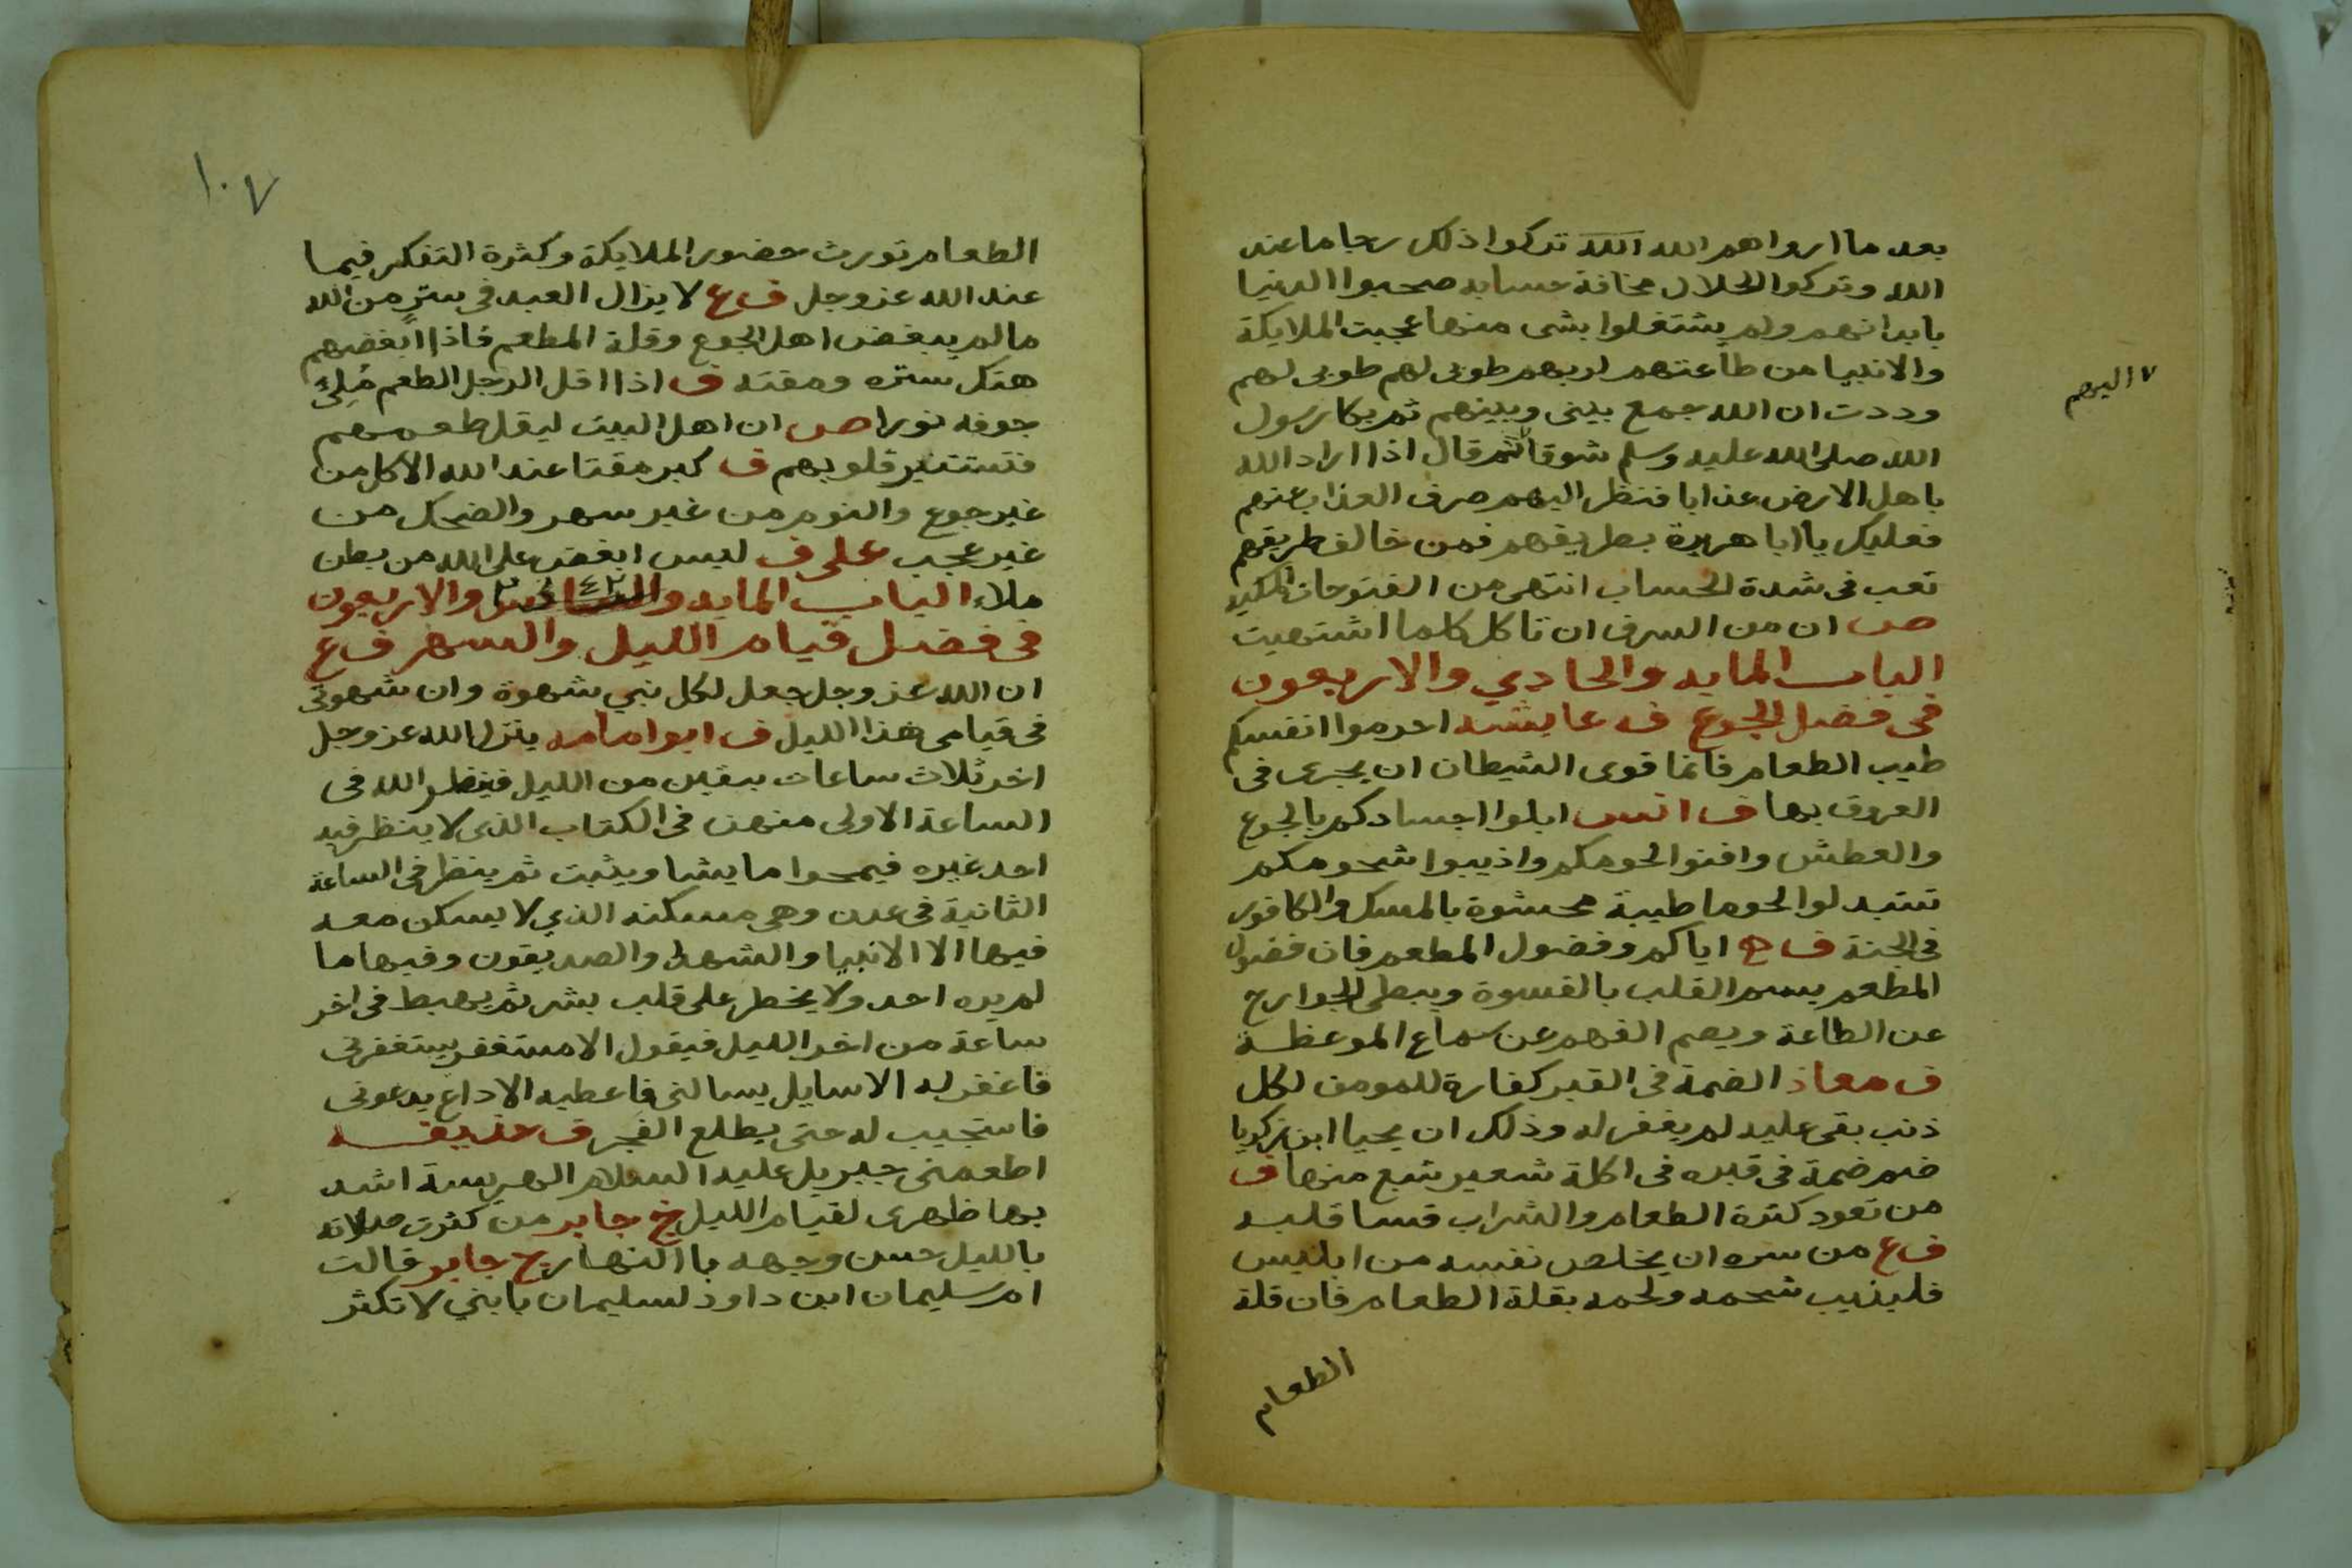 بعد ما ارواهم الله الله تركوا ذلك رجا ما عند
الله وتركوا الحلال مخافة حسابه صحبوا الدنيا
بابدانهم ولم يشتغلوا بشى منها عجبت الملايكة
والانبيا من طاعتهم لربهم طوبى لهم طوبى لهم
وددت ان الله جمع بينى وبينهم ثم بكا رسول
الله صلى الله عليه وسلم شوقا ثم قال اذا اراد الله
باهل الارض عذابا فنظر اليهم صرف العذاب عنهم
فعليك يا ابا هريرة بطريقهم فمن خالف طريقهم
تعب فى شدة الحساب انتهى من الفتوحات المكيه
ص ان من السرف ان تاكل كلما اشتهيت
الباب المايه والحادي والاربعون
فى فضل الجوع ف عايشه احرموا انفسكم
طيب الطعام فانما قوى الشيطان ان يجرى فى
العروق بها ف انس ابلوا اجسادكم بالجوع
والعطش وافنوا لحومكم واذيبوا شحومكم
تستبدلوا لحوما طيبة محشوة بالمسك والكافور
فى الجنة ف ع اياكم وفضول المطعم فان فضول
المطعم يسم القلب بالقسوة ويبطى الجوارح
عن الطاعة ويصم الفهم عن سماع الموعظة
ف معاذ الضمة فى القبر كفارة للمومن لكل
ذنب بقى عليه لم يغفر له وذلك ان يحيا ابن زكريا
ضم ضمة فى قبره فى اكلة شعير شبع منها ف
من تعود كثرة الطعام والشراب قسا قلبه
ف ع من سره ان يخلص نفسه من ابليس
فليذيب شحمه ولحمه بقلة الطعام فان قلة
الطعام
٧ اليهم
١٠٧
الطعام تورث حضور الملايكة وكثرة التفكر فيما
عند الله عز وجل ف ع لا يزال العبد فى ستر من الله
ما لم يبغض اهل الجوع وقلة المطعم فاذا ابغضهم
هتك ستره ومقته ف اذا اقل الرجل الطعم مُلِئ
جوفه نورا ص ان اهل البيت ليقل طعمهم
فتستنير قلوبهم ف كبر مقتا عند الله الاكل من
غير جوع والنوم من غير سهر والضحك من
غير عجب على ف ليس ابغض على الله من بطن
ملاء الباب المايه و ٤٢ والاربعون
فى فضل قيام الليل والسهر ف ع
ان الله عز وجل جعل لكل نبي شهوة وان شهوتى
فى قيامى هذا الليل ف ابوا مامه ينزل الله عز وجل
اخر ثلاث ساعات يبقين من الليل فينظر الله فى
الساعة الاولى منهن فى الكتاب الذى لا ينظر فيه
احد غيره فيمحوا ما يشا ويثبت ثم ينظر فى الساعة
الثانية فى عدن وهى مسكنه الذي لا يسكن معه
فيها الا الانبيا والشهدا والصديقون وفيها ما
لم يره احد ولا يخطر على قلب بشر ثم يهبط فى اخر
ساعة من اخر الليل فيقول الا مستغفر يستغفرنى
فاغفر له الا سايل يسالنى فاعطيه الا داع يدعونى
فاستجيب له حتى يطلع الفجر ف حذيفه
اطعمنى جبريل عليه السلام الهريسة اشد
بها ظهرى لقيام الليل خ جابر من كثرت صلاته
بالليل حسن وجهه باالنهار ح جابر قالت
ام سليمان ابن داود لسليمان يا بني لا تكثر